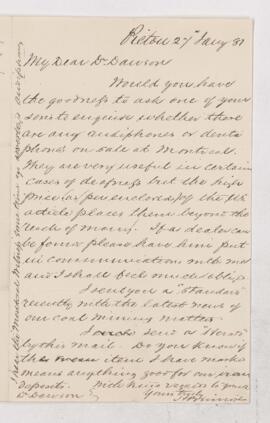 Pictou 27th Jany 81
My Dear Dr Dawson
Would you have
the goodness to ask one of your
sons to enquire whether there
are any audiphones or denta
phones on sale at Montreal.
They are very useful in certain
cases of deafness but the high
price (as per enclosed) of the US
article places them beyond the
reach of many. If a dealer can
be found please have him put
in communication with me
and I shall feel much oblig
I sent you a "Standard"
recently with the latest news of
our coal mining matters
I send a "Herald"
by this mail. Do you know if
the item I have marked
means anything good for our iron
deposits. With kind regards to yours
Dr Dawson Yours truly